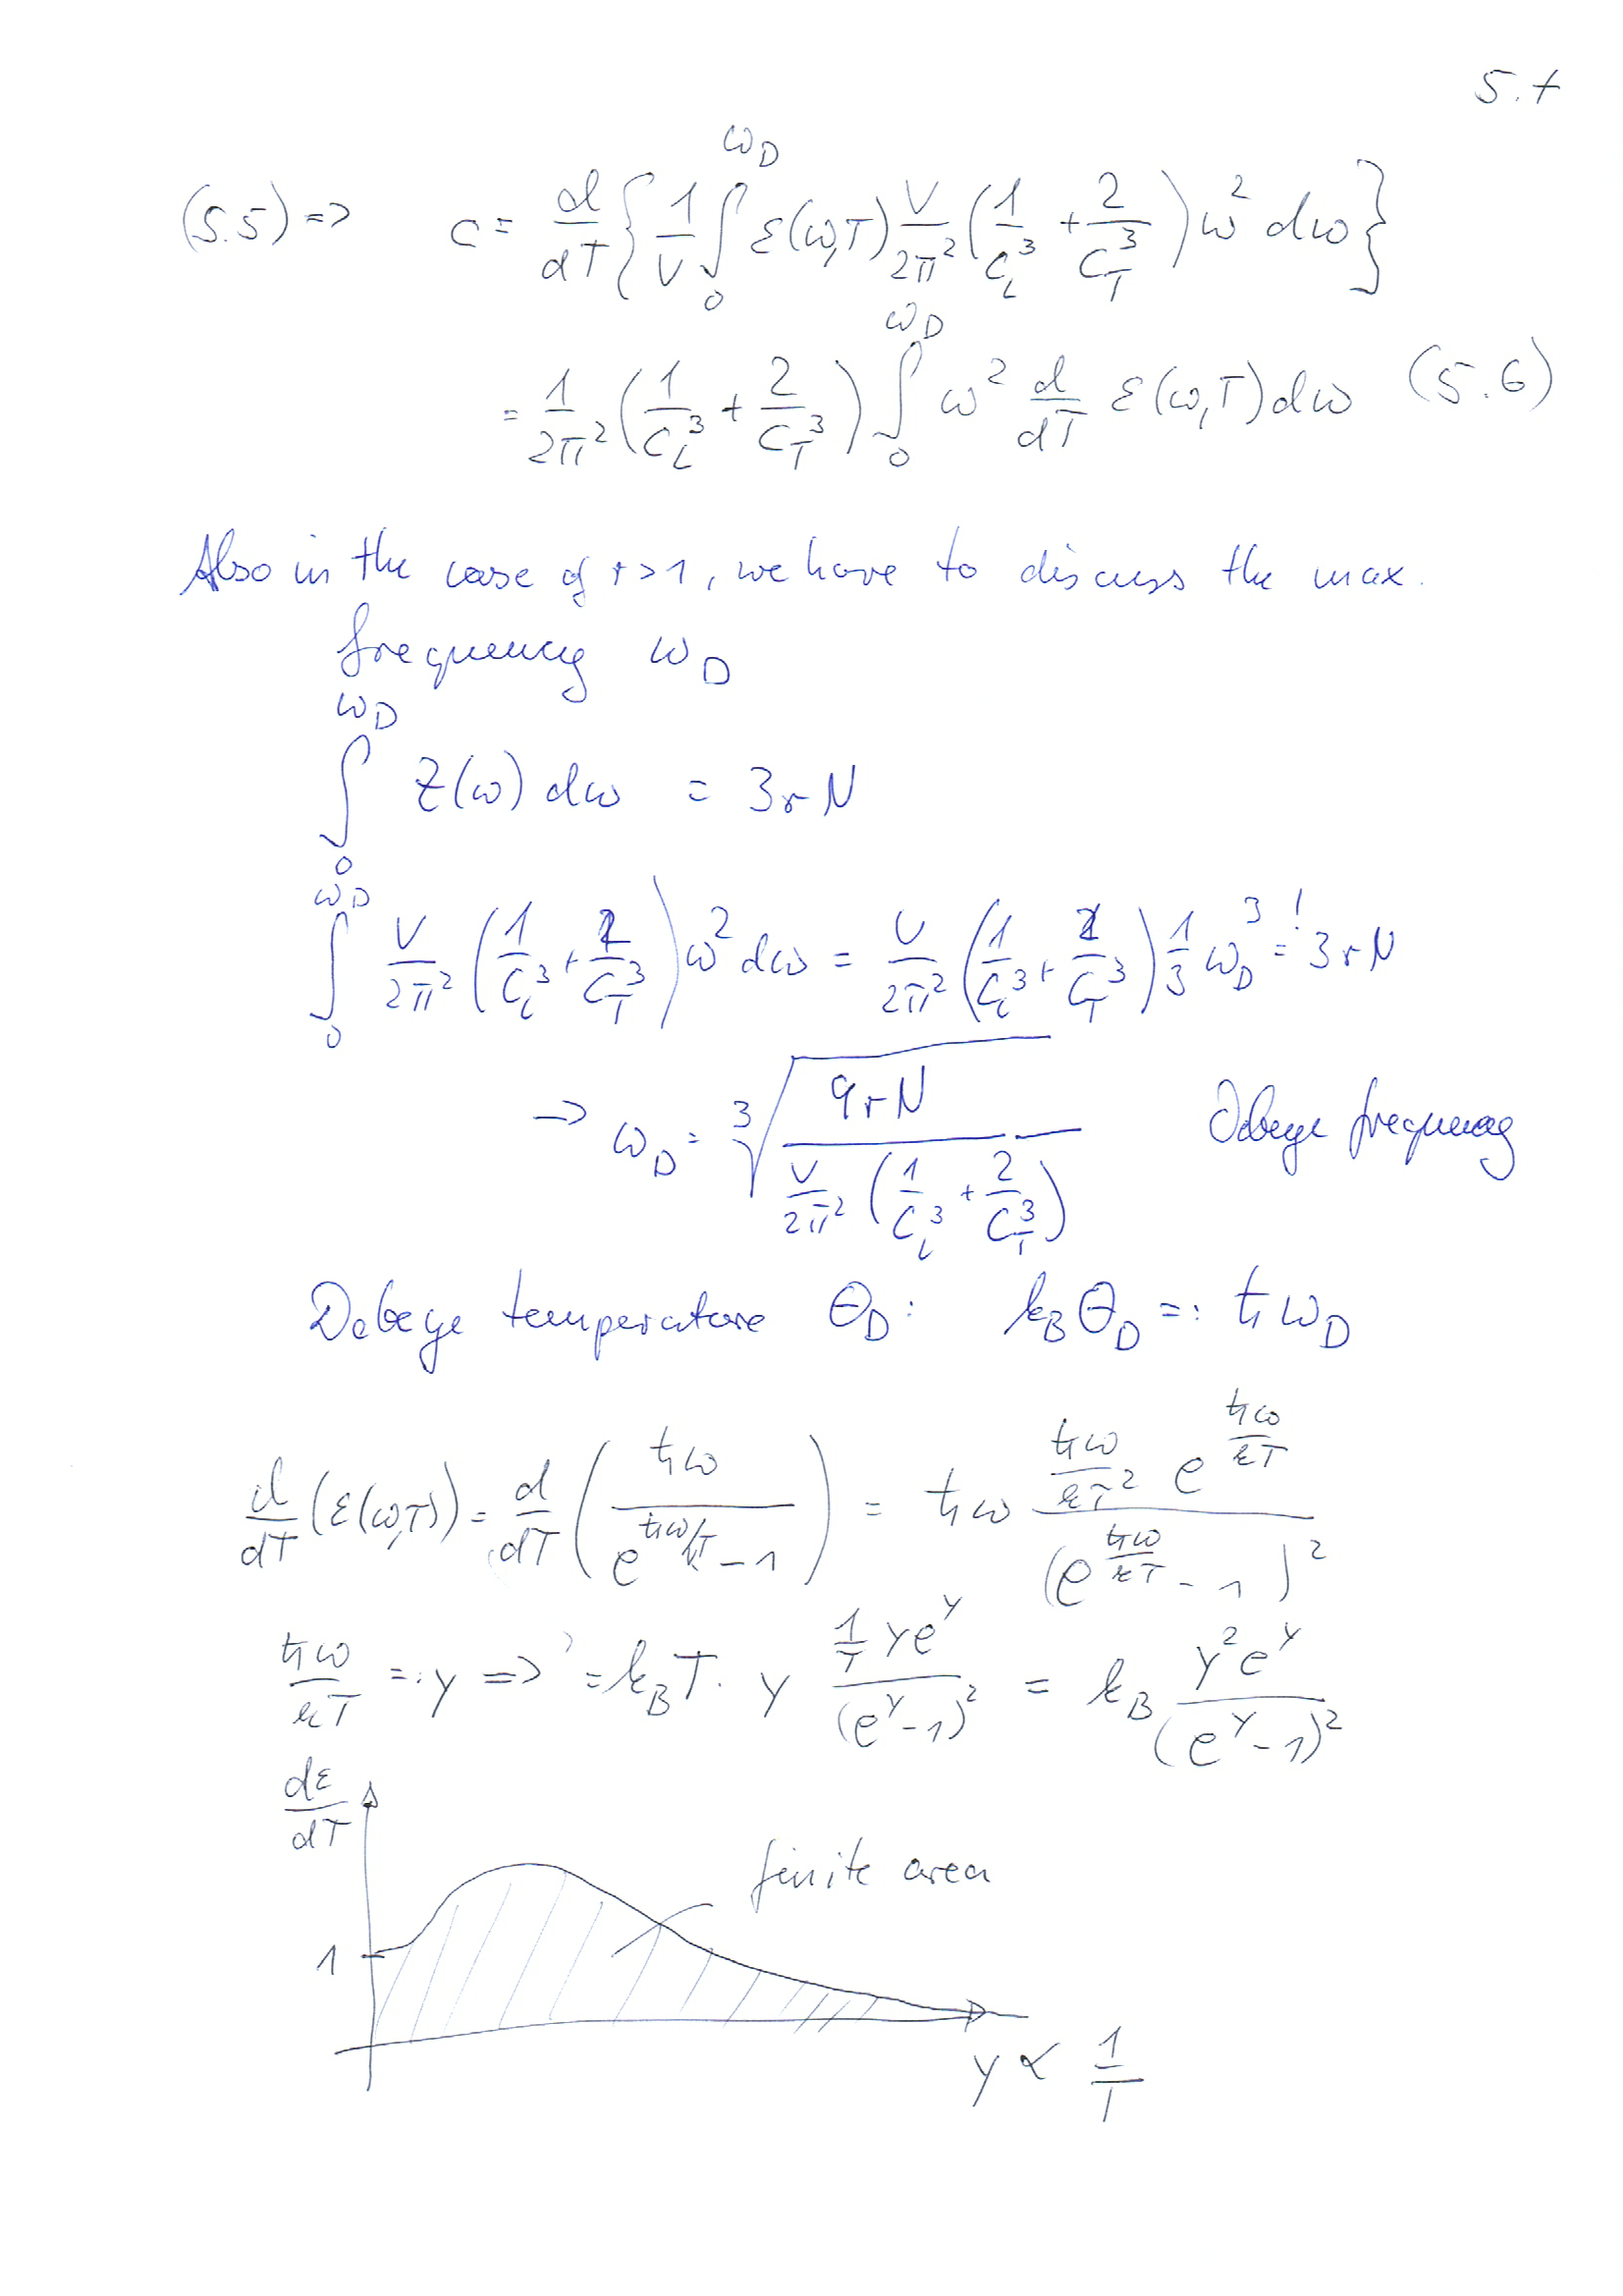 5.7
(5.5) => c = d/dT { 1/V ∫_0^{ω_D} ε(ω,T) V/2π² ( 1/c_L³ + 2/c_T³ ) ω² dω }
= 1/2π² ( 1/c_L³ + 2/c_T³ ) ∫_0^{ω_D} ω² d/dT ε(ω,T) dω (5.6)
Also in the case of r>1, we have to discuss the max.
frequency ω_D
∫_0^{ω_D} Z(ω) dω = 3rN
∫_0^{ω_D} V/2π² ( 1/c_L³ + 2/c_T³ ) ω² dω = V/2π² ( 1/c_L³ + 2/c_T³ ) 1/3 ω_D³ =! 3rN
→ ω_D = ∛( 9rN / ( V/2π² ( 1/c_L³ + 2/c_T³ ) ) ) Debeye frequency
Debeye temperature Θ_D : k_B Θ_D =: ħω_D
d/dT (ε(ω,T)) = d/dT ( ħω / ( e^{ħω/kT} - 1 ) ) = ħω ( ħω/kT² e^{ħω/kT} ) / ( e^{ħω/kT} - 1 )²
ħω/kT =: y => = k_B T · y ( 1/T y e^y ) / ( e^y - 1 )² = k_B y² e^y / ( e^y - 1 )²
dε/dT
finite area
1
y ∝ 1/T